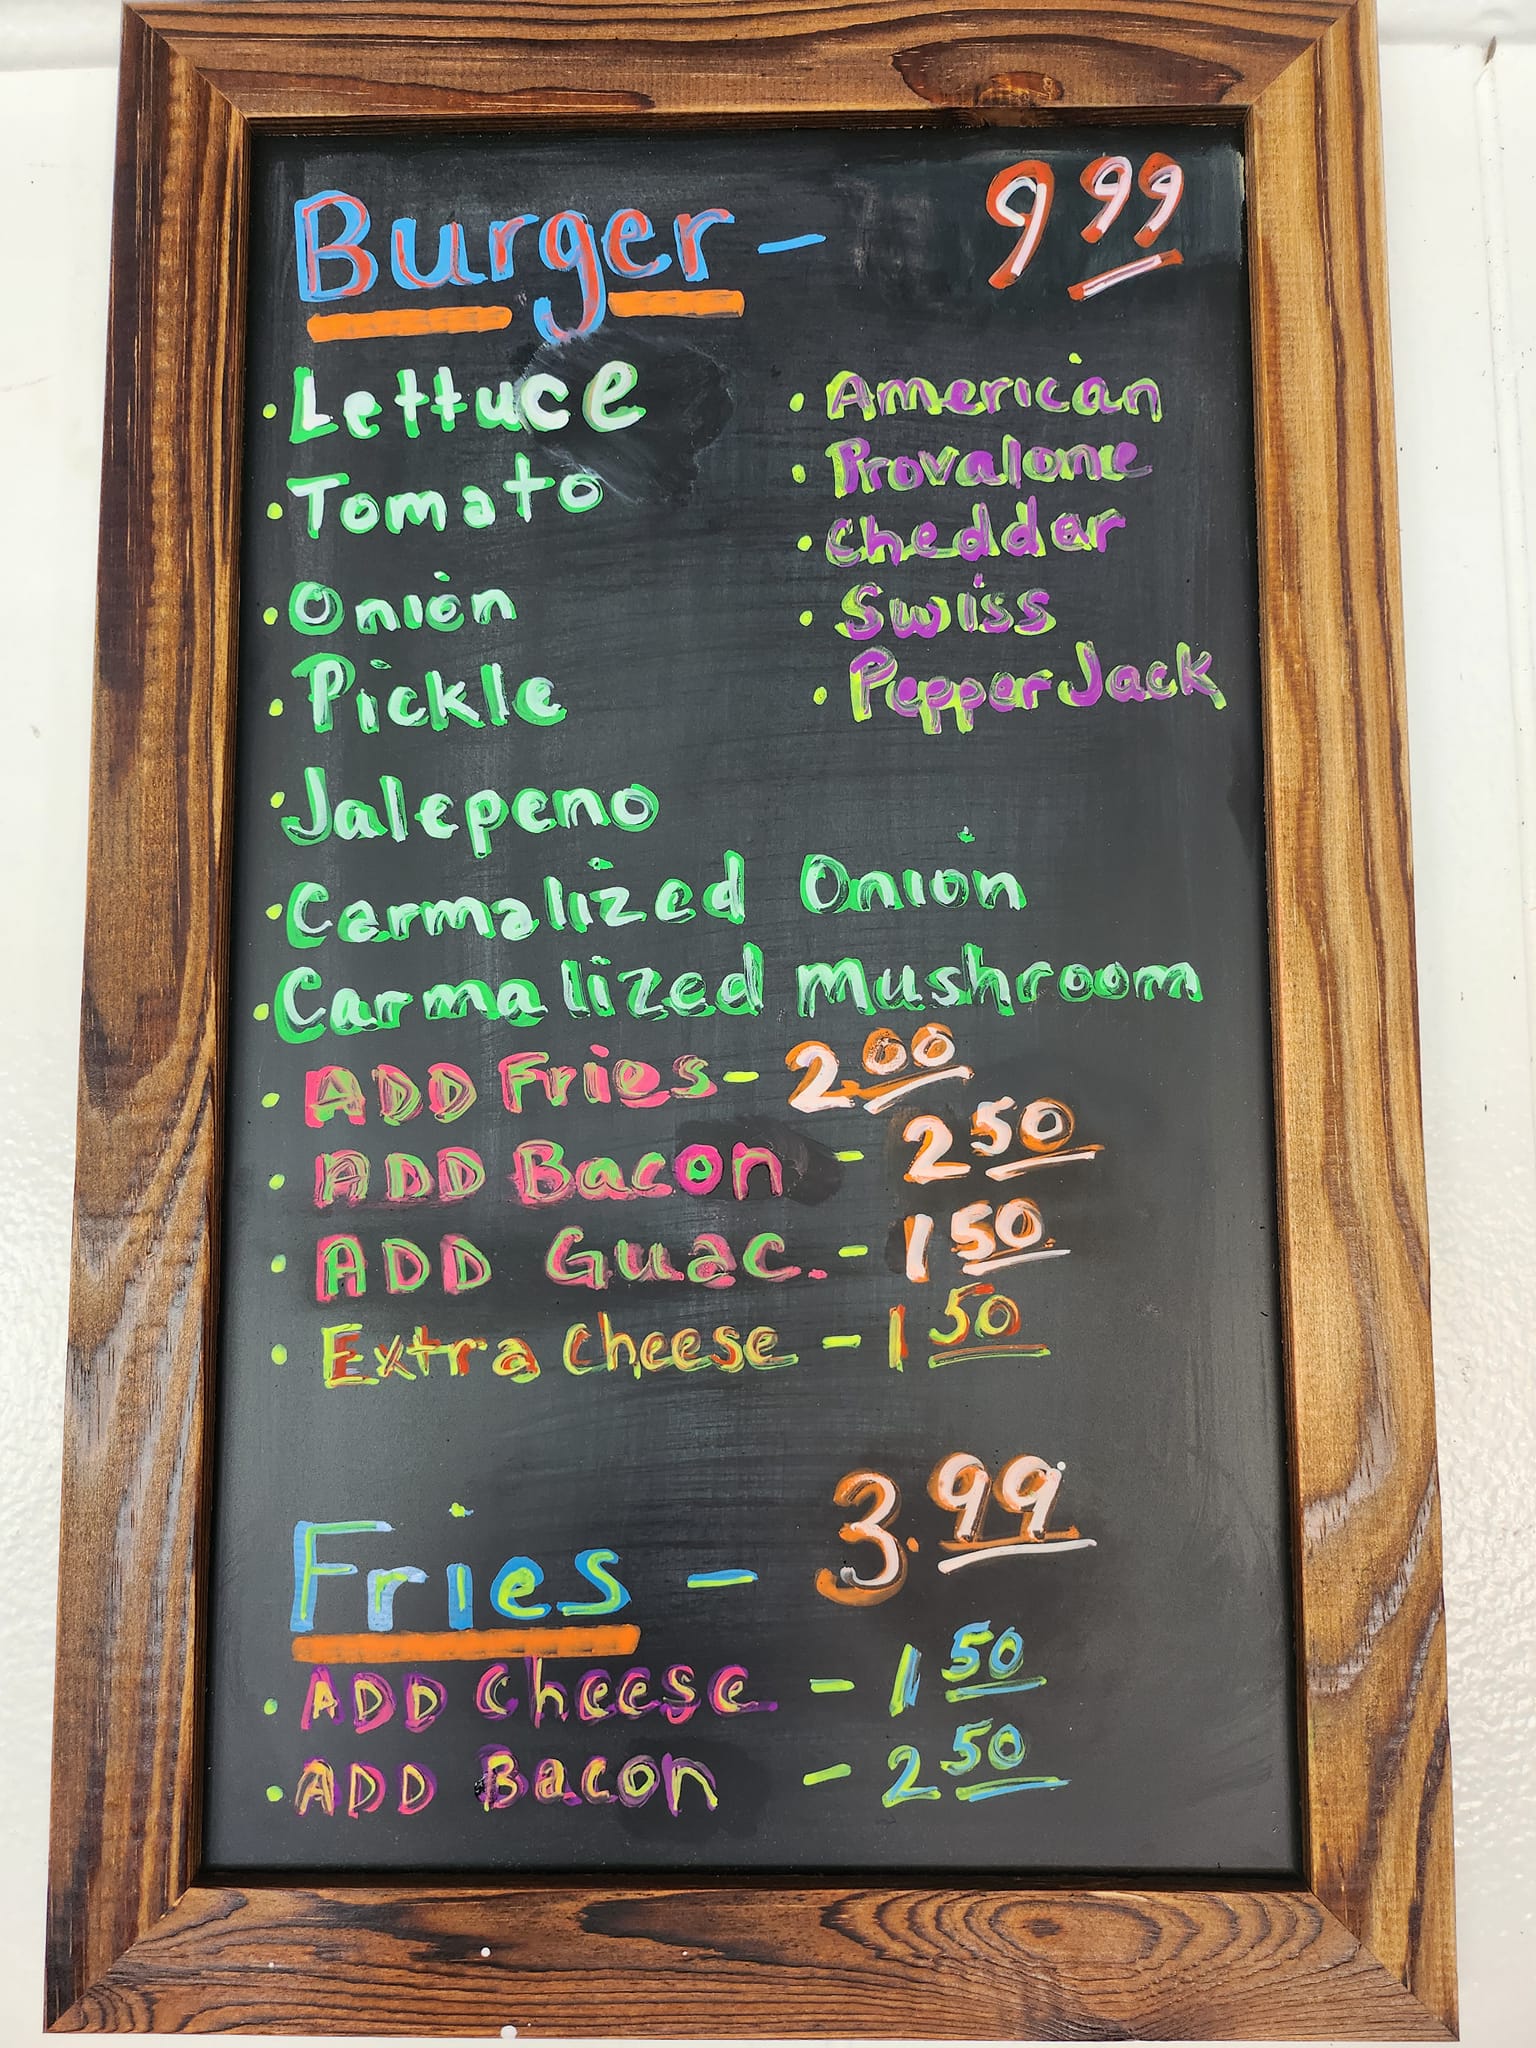 Burger - 9 99
• Lettuce
• Tomato
• Onion
• Pickle
• Jalepeno
• American
• Provalone
• Cheddar
• Swiss
• Pepper Jack
• Carmalized Onion
• Carmalized Mushroom
• ADD Fries - 2.00
• ADD Bacon - 2 50
• ADD Guac. - 1 50
• Extra Cheese - 1 50
Fries - 3.99
• ADD Cheese - 1 50
• ADD Bacon - 2 50